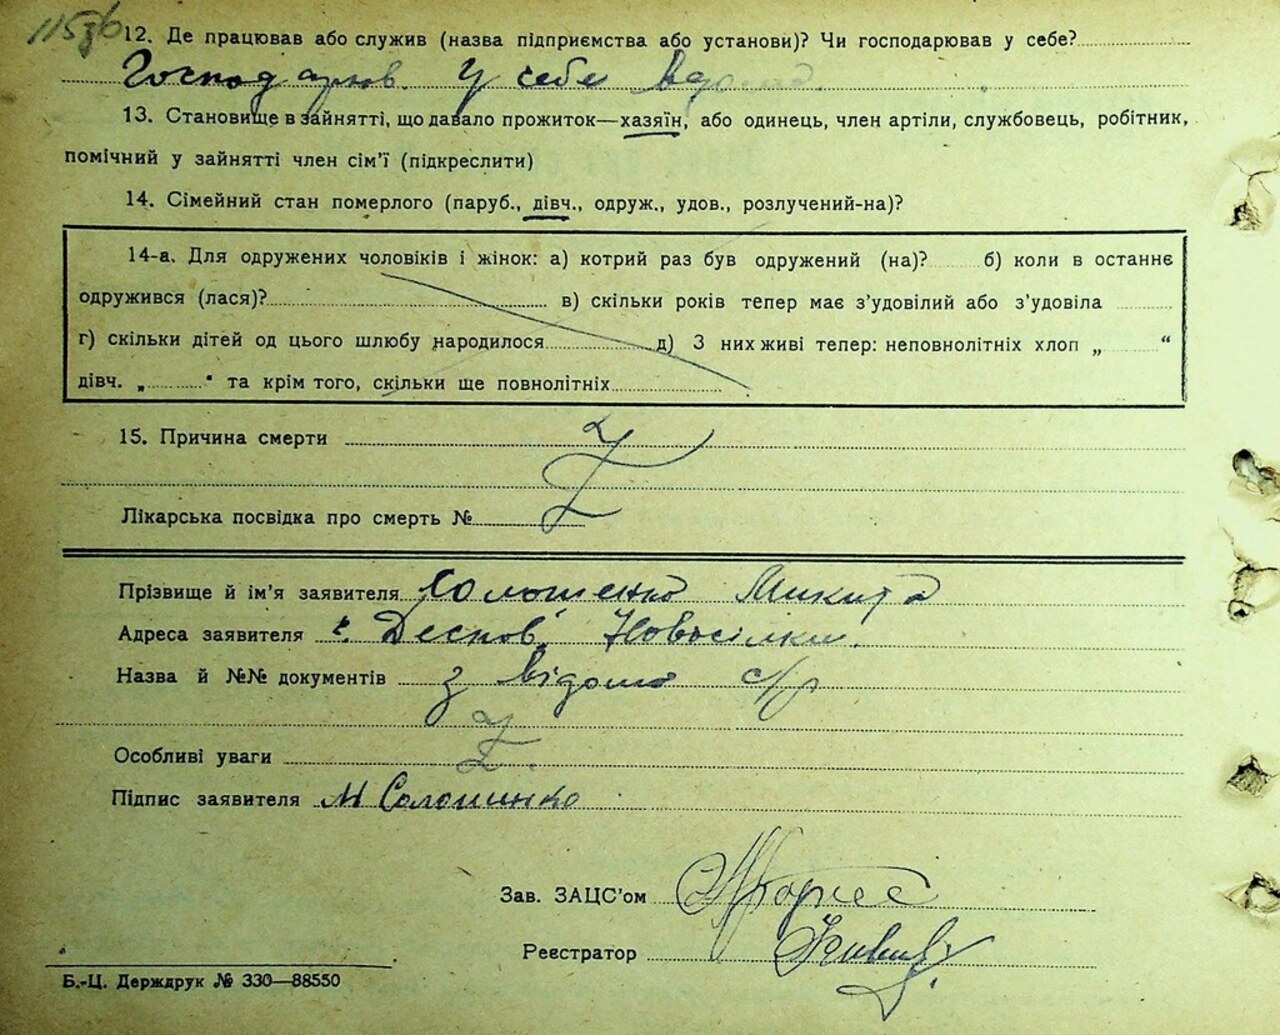 115зв
12. Де працював або служив (назва підприємства або установи)? Чи господарював у себе?
Господарюв. у себе вдома
13. Становище в зайнятті, що давало прожиток—хазяїн, або одинець, член артіли, службовець, робітник,
помічний у зайнятті член сім'ї (підкреслити)
14. Сімейний стан померлого (паруб., дівч., одруж., удов., розлучений-на)?
14-а. Для одружених чоловіків і жінок: а) котрий раз був одружений (на)? б) коли в останнє
одружився (лася)? в) скільки років тепер має з'удовілий або з'удовіла
г) скільки дітей од цього шлюбу народилося д) З них живі тепер: неповнолітніх хлоп „ “
дівч. „ “ та крім того, скільки ще повнолітніх
15. Причина смерти
Лікарська посвідка про смерть №
Прізвище й ім'я заявителя Солошенко Микита
Адреса заявителя Новосілки
Назва й №№ документів з відома с/р
Особливі уваги
Підпис заявителя М Солошинко
Зав. ЗАЦС'ом
Реєстратор
Б.-Ц. Держдрук № 330—88550